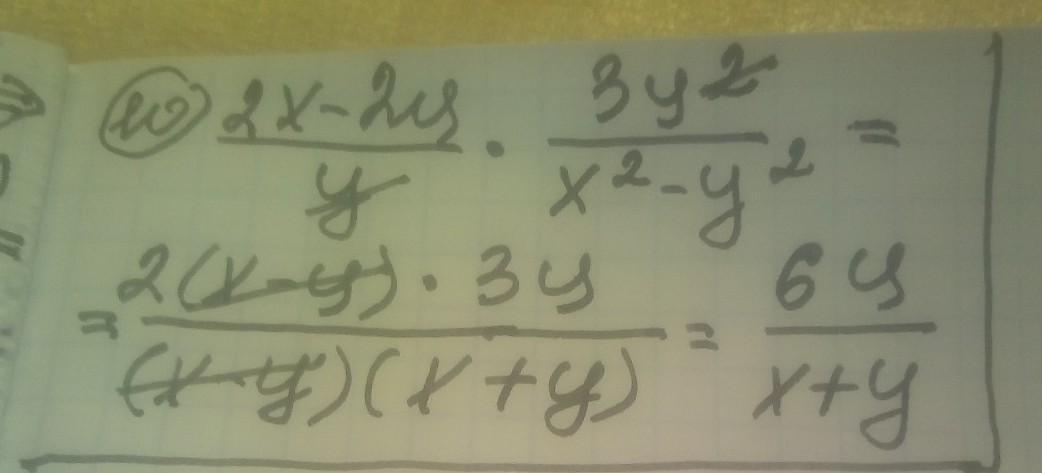 ю) (2x-2y)/y · 3y²/(x²-y²) =
= (2(x-y) · 3y)/((x-y)(x+y)) = 6y/(x+y)